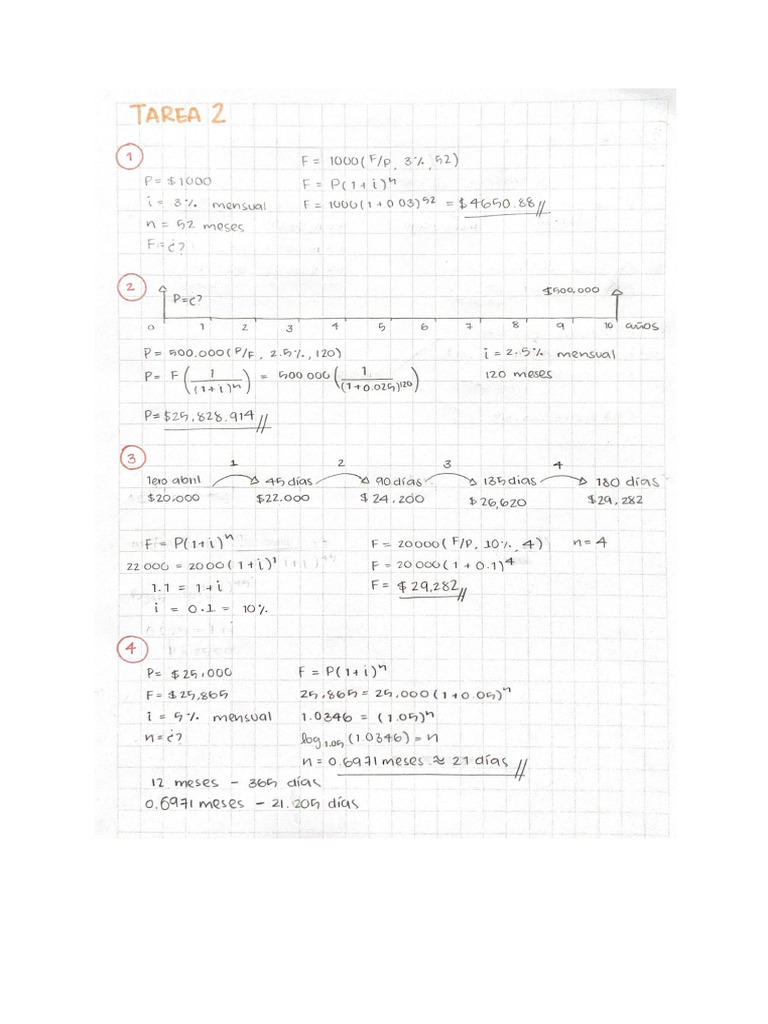 TAREA 2
1
F = 1000(F/P, 3%, 52)
P= $1000
F = P(1+i)ⁿ
i = 3% mensual
F = 1000(1+0.03)⁵² = $4650.88
n = 52 meses
F=¿?
2
P=¿?
$500,000
0 1 2 3 4 5 6 7 8 9 10 años
P= 500.000(P/F, 2.5%, 120)
i = 2.5% mensual
P= F(1/(1+i)ⁿ) = 500 000(1/(1+0.025)¹²⁰)
120 meses
P= $25,828.914
3
1 2 3 4
1ero abril 45 días 90 días 135 días 180 días
$20,000 $22.000 $24,200 $26,620 $29,282
F = P(1+i)ⁿ
F= 20000(F/P, 10%, 4) n=4
22 000 = 2000(1+i)¹
F= 20 000(1+0.1)⁴
1.1 = 1+i
F= $29,282
i = 0.1 = 10%
4
P= $25,000
F = P(1+i)ⁿ
F= $25,865
25,865 = 25,000(1+0.05)ⁿ
i = 5% mensual
1.0346 = (1.05)ⁿ
n=¿?
log₁.₀₅(1.0346) = n
n = 0.6971 meses ≈ 21 días
12 meses - 365 días
0.6971 meses - 21.205 días